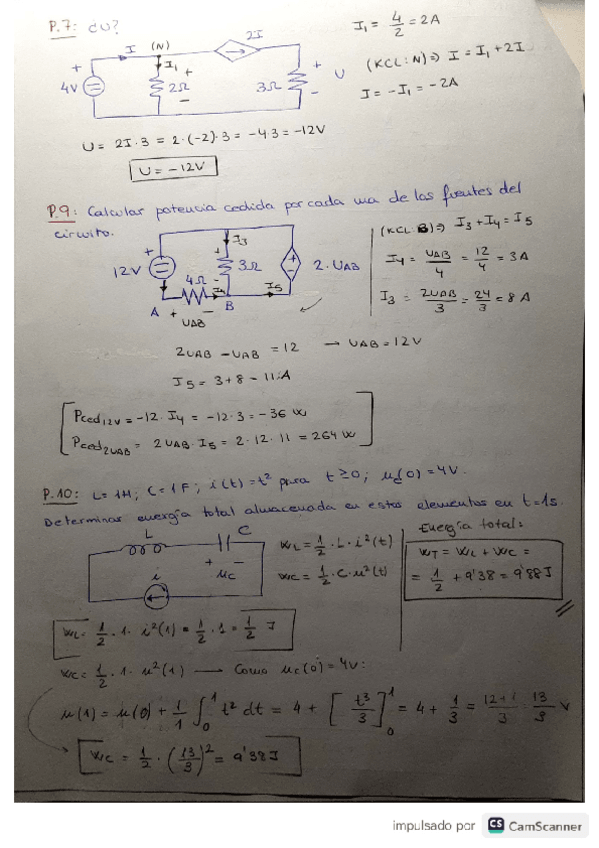 P.7: ¿U?
I₁ = 4/2 = 2A
I (N) 2I
(KCL:N) ⇒ I = I₁ + 2I
+ I₁ + +
4V 2Ω 3Ω U
- -
I = -I₁ = -2A
U = 2I·3 = 2·(-2)·3 = -4·3 = -12V
U = -12V
P.9: Calcular potencia cedida por cada una de las fuentes del
circuito.
(KCL:B) ⇒ I₃ + I₄ = I₅
+ I₃
12V 3Ω 2·UAB
I₄ = UAB/4 = 12/4 = 3A
4Ω I₅
A + UAB - B
I₃ = 2UAB/3 = 24/3 = 8A
2UAB - UAB = 12 → UAB = 12V
I₅ = 3+8 = 11A
Pced12V = -12·I₄ = -12·3 = -36 W
Pced2UAB = 2UAB·I₅ = 2·12·11 = 264 W
P.10: L=1H; C=1F; i(t)=t² para t≥0; uc(0)=4V.
Determinar energía total almacenada en estos elementos en t=1s.
L C
+ -
i uc
WL = 1/2·L·i²(t)
WC = 1/2·C·u²(t)
Energía total:
WT = WL + WC =
= 1/2 + 9'38 = 9'88J
WL = 1/2·1·i²(1) = 1/2·1 = 1/2 J
WC = 1/2·1·u²(1) → Como uc(0)=4V:
u(1) = u(0) + 1/1 ∫₀¹ t² dt = 4 + [t³/3]₀¹ = 4 + 1/3 = 12+1/3 = 13/3 V
WC = 1/2·(13/3)² = 9'38J
impulsado por CS CamScanner